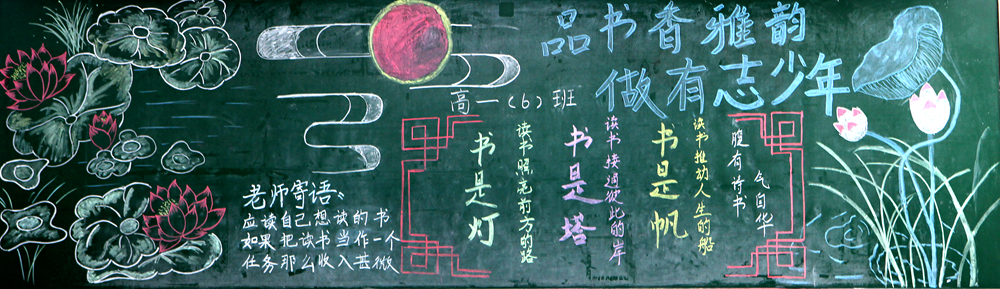 品书香雅韵
做有志少年
高一(6)班
书是灯
读书照亮前方的路
书是塔
读书接通彼此的岸
书是帆
读书推动人生的船
腹有诗书
气自华
老师寄语:
应读自己想读的书
如果把读书当作一个
任务那么收入甚微